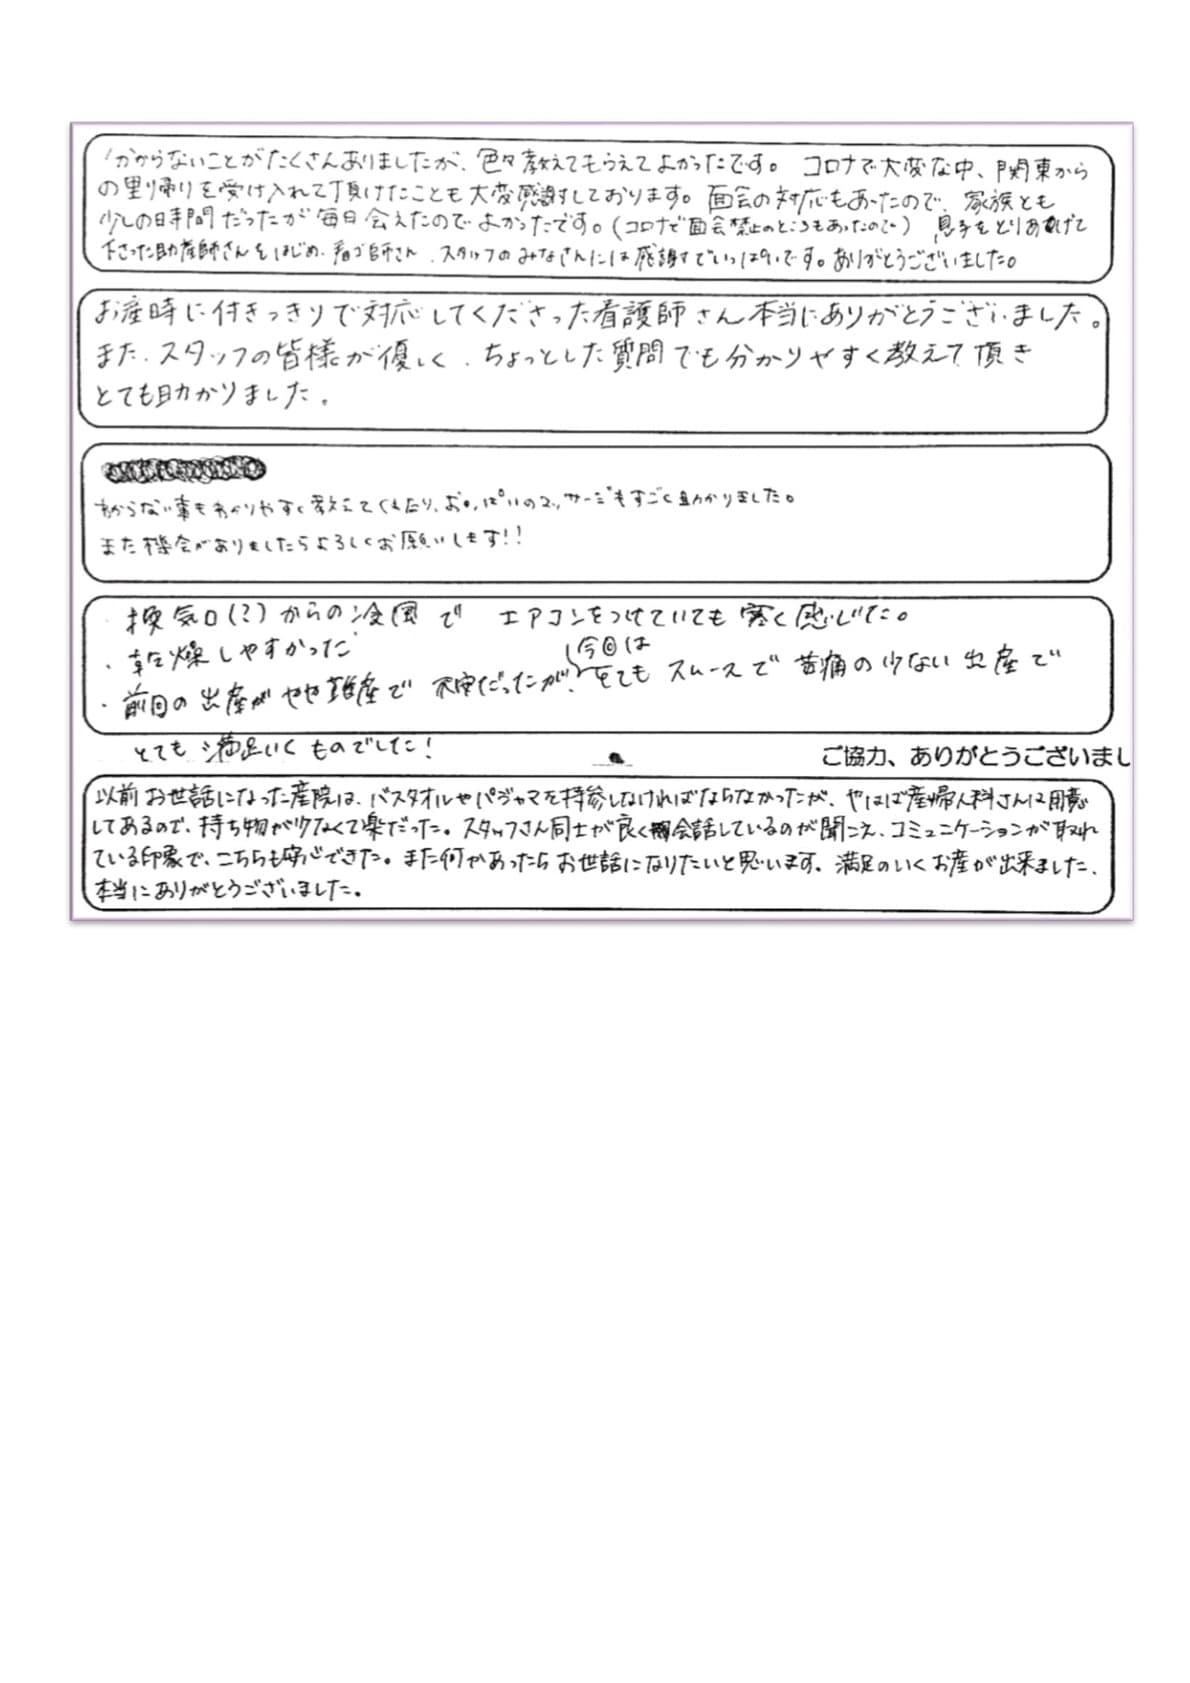 分からないことがたくさんありましたが、色々教えてもらえてよかったです。 コロナで大変な中、関東から
の里り帰りを受け入れて頂けたことも大変感謝しております。面会の対応もあったので、家族とも
少しの時間だったが毎日会えたのでよかったです。(コロナで面会禁止のところもあったので) 息子をとりあげて
下さった助産師さんをはじめ、看ゴ師さん、スタッフのみなさんには感謝でいっぱいです。ありがとうございました。
お産時に付きっきりで対応してくださった看護師さん本当にありがとうございました。
また、スタッフの皆様が優しく、ちょっとした質問でも分かりやすく教えて頂き
とても助かりました。
わからない事もわかりやすく教えてくれたり、おっぱいのマッサージもすごく助かりました。
また機会がありましたらよろしくお願いします!!
換気口(?)からの冷風で エアコンをつけていても寒く感じた。
・乾燥しやすかった
今回は
・前回の出産がやや難産で 不安だったが、とても スムースで 苦痛の少ない出産で
とても満足いくものでした!
ご協力、ありがとうございまし
以前お世話になった産院は、バスタオルやパジャマを持参しなければならなかったが、やはば産婦人科さんは用意
してあるので、持ち物が少なくて楽だった。スタッフさん同士が良く会話しているのが聞こえ、コミュニケーションが取れ
ている印象で、こちらも安心できた。また何かあったらお世話になりたいと思います。満足のいくお産が出来ました、
本当にありがとうございました。